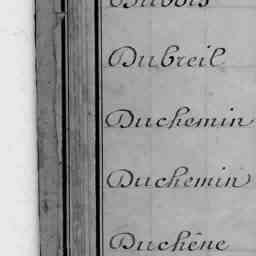 Dubois
Dubreil
Duchemin
Duchemin
Duchêne